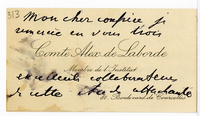 313
Mon cher confrère je
remercie en vous trois
Comte Alex. de Laborde
Membre de l'Institut
excellents collaborateurs
de cette étude attachante
81, Boulevard de Courcelles